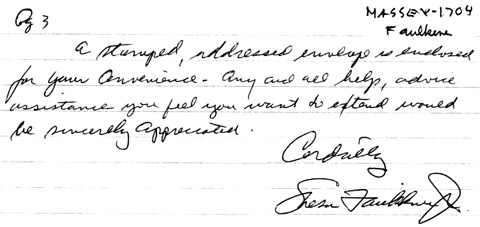 Pg 3
MASSEY-1704
Faulkner
A stamped, addressed envelope is enclosed
for your convenience - Any and all help, advice
assistance you feel you want to extend would
be sincerely appreciated.
Cordially
Jr.